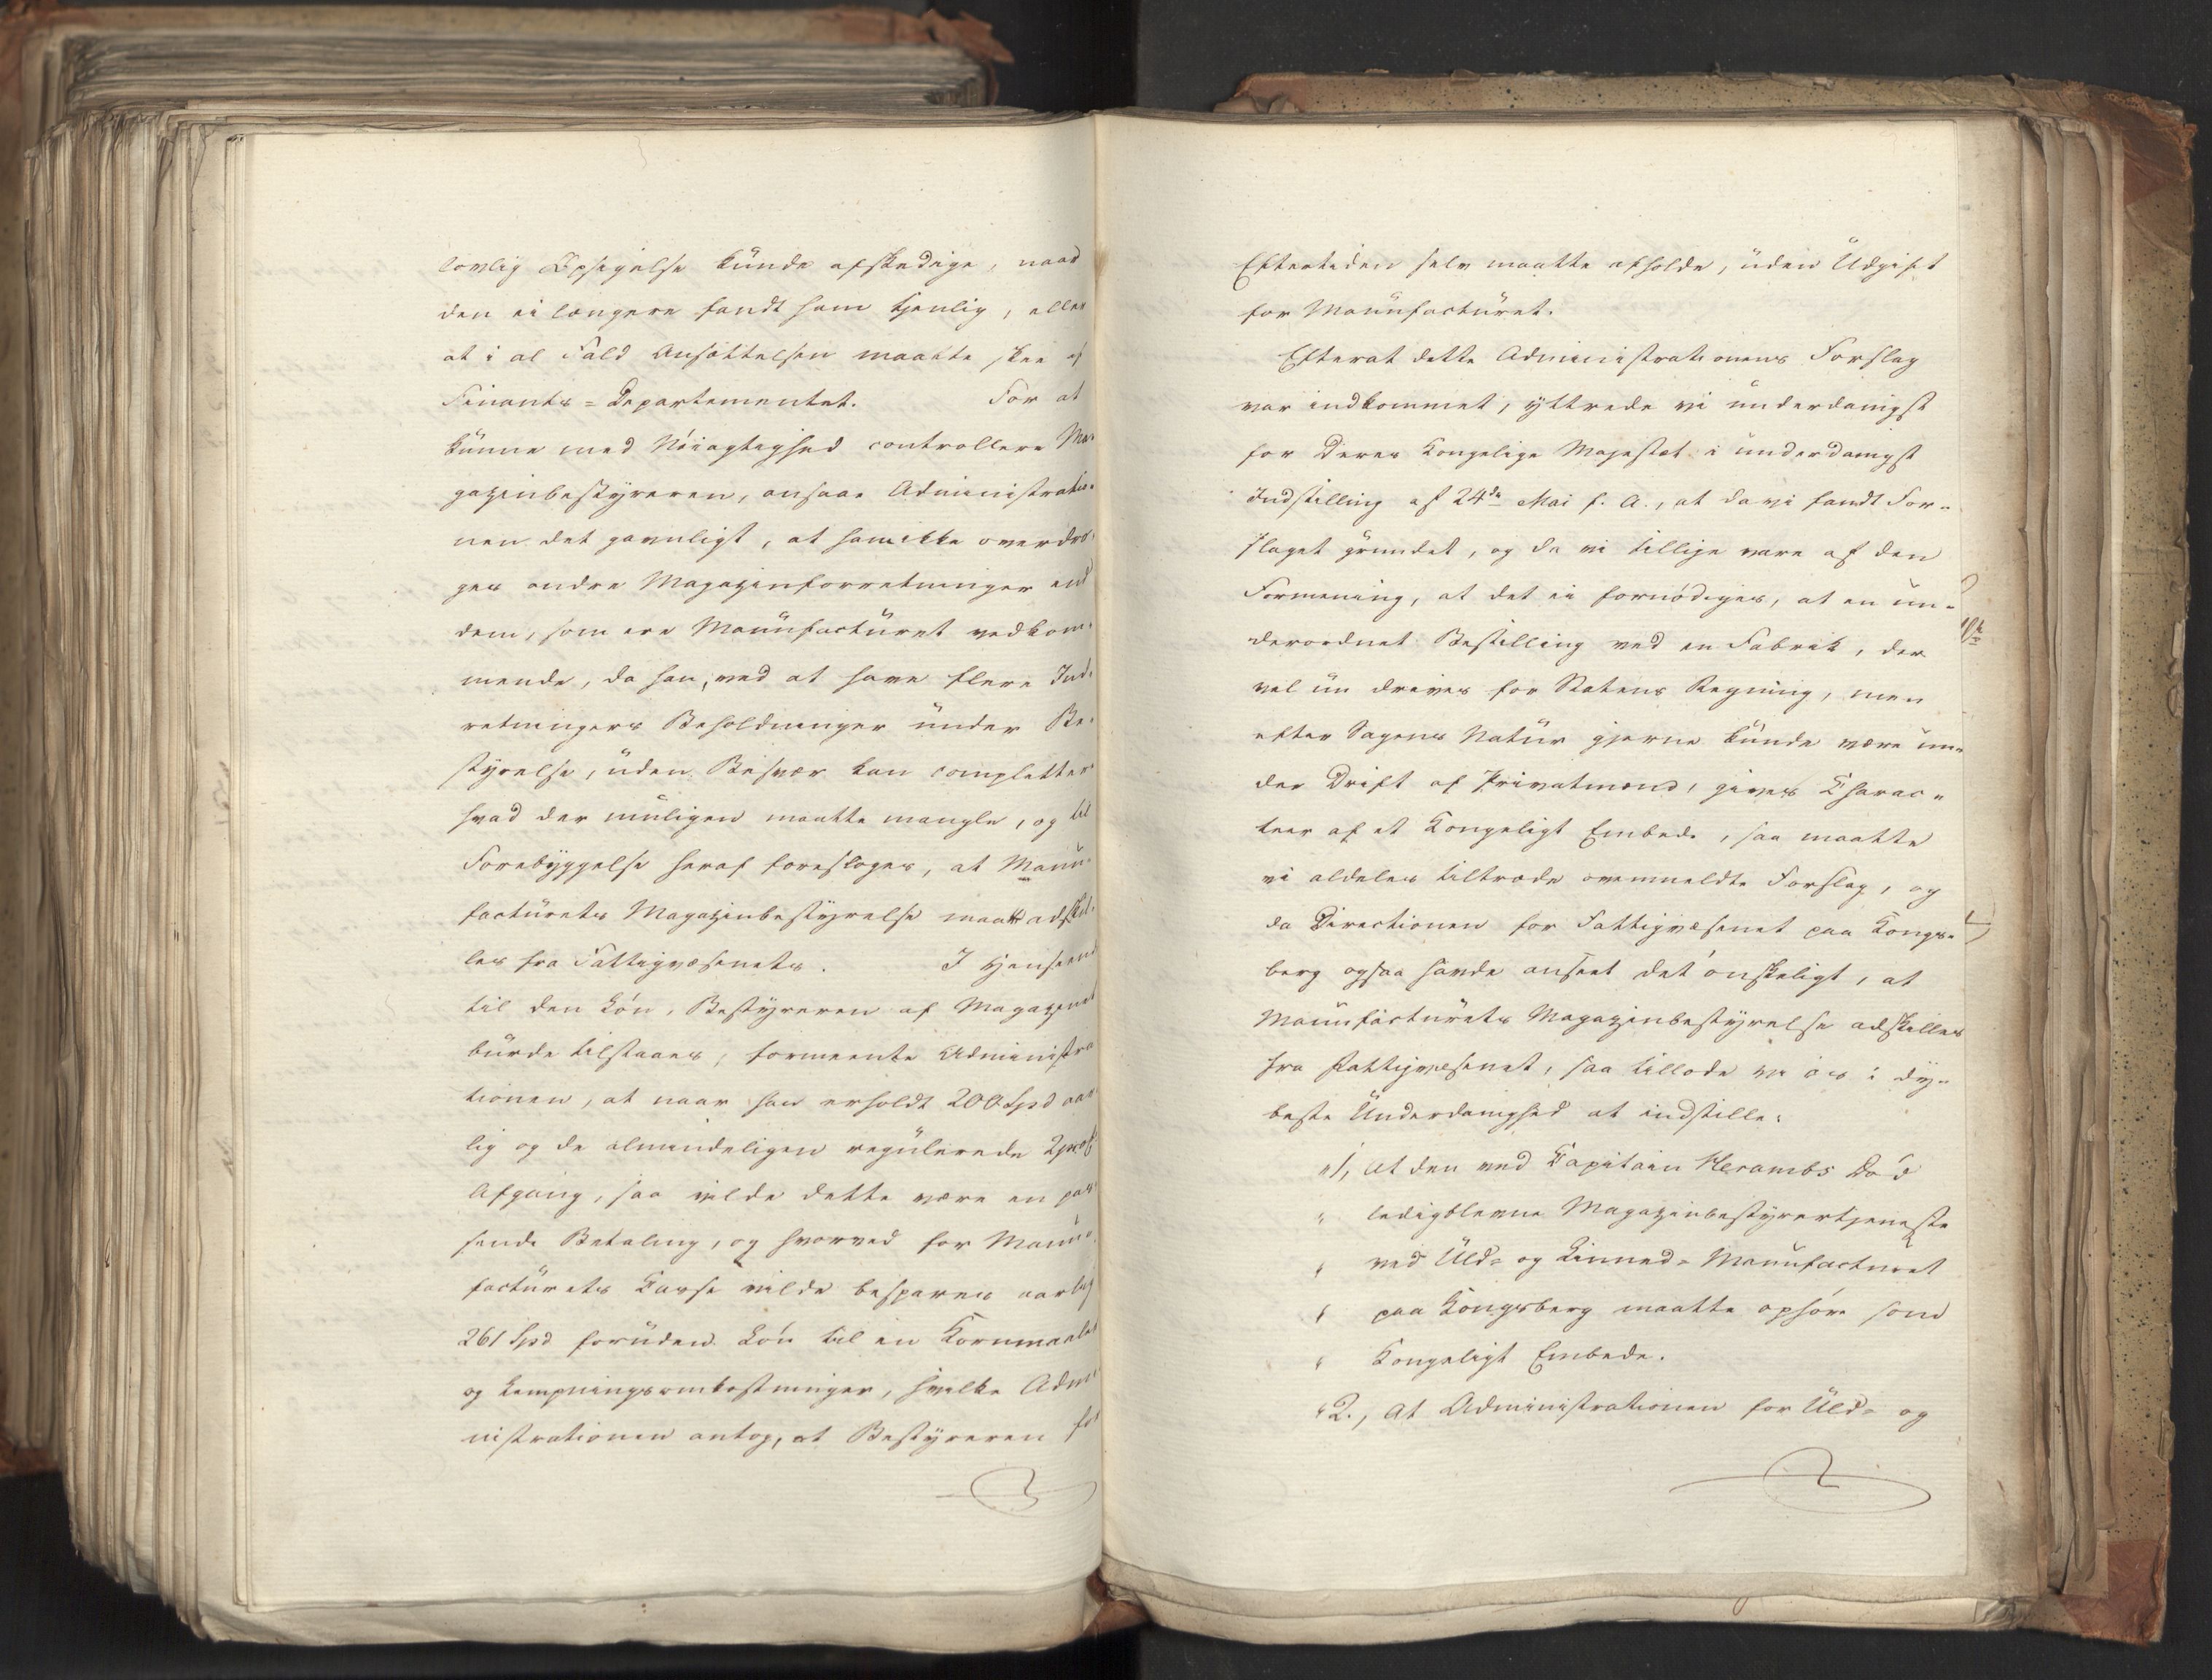 lovlig Opsigelse kunde afskedige, naar
den ei længere fandt ham tjenlig, eller
at i al Fald Ansættelsen maatte skee af
Finants=Departementet. For at
kunne med Nöiagtighed controllere Ma-
gazinbestyreren, ansaae Administratio-
nen det gavnligt, at ham ikke overdra-
ges andre Magazinforretninger end
dem, som ere Manufacturet vedkom-
mende, da han, ved at have flere Ind-
retningers Beholdninger under Be-
styrelse, uden Besvær kan complettere
hvad der muligen maatte mangle, og til
Forebyggelse heraf foresloges, at Manu-
facturets Magazinbestyrelse maatte adskil-
les fra Fattigvæsenets. I Henseende
til den Lön, Bestyreren af Magazinet
burde tilstaaes, formeente Administra-
tionen, at naar han erholdt 200 Spd aar-
lig og de almindeligen regulerede 2 proCt
Afgang, saa vilde dette være en pas-
sende Betaling, og hvorved for Manu-
facturets Casse vilde bespares aarlig
261 Spd foruden Lön til en Kornmaaler
og Kempningsomkostninger, hvilke Admi-
nistrationen antog, at Bestyreren for
Eftertiden selv maatte afholde, uden Udgift
for Manufacturet.
Efterat dette Administrationens Forslag
var indkommet, yttrede vi underdanigst
for Deres Kongelige Majestæt i underdanigst
Indstilling af 24de Mai f. A., at da vi fandt For-
slaget grundet, og da vi tillige vare af den
Formening, at det ei fornödiges, at en un-
derordnet Bestilling ved en Fabrik, der
vel nu drives for Statens Regning, men
efter Sagens Natur gjerne kunde være un-
der Drift af Privatmænd, gives Charac-
teer af et Kongeligt Embede, saa maatte
vi aldeles tiltræde ovenmeldte Forslag, og
da Directionen for Fattigvæsenet paa Kongs-
berg ogsaa havde anseet det önskeligt, at
Manufacturets Magazinbestyrelse adskilles
fra Fattigvæsenet, saa tillode vi os i dy-
beste Underdanighed at indstille:
"1, At den ved Capitain Herambs Död
" ledigblevne Magazinbestyrertjeneste
" ved Uld- og Linned-Manufacturet
" paa Kongsberg maatte ophöre som
" Kongeligt Embede.
"2., At Administrationen for Uld- og